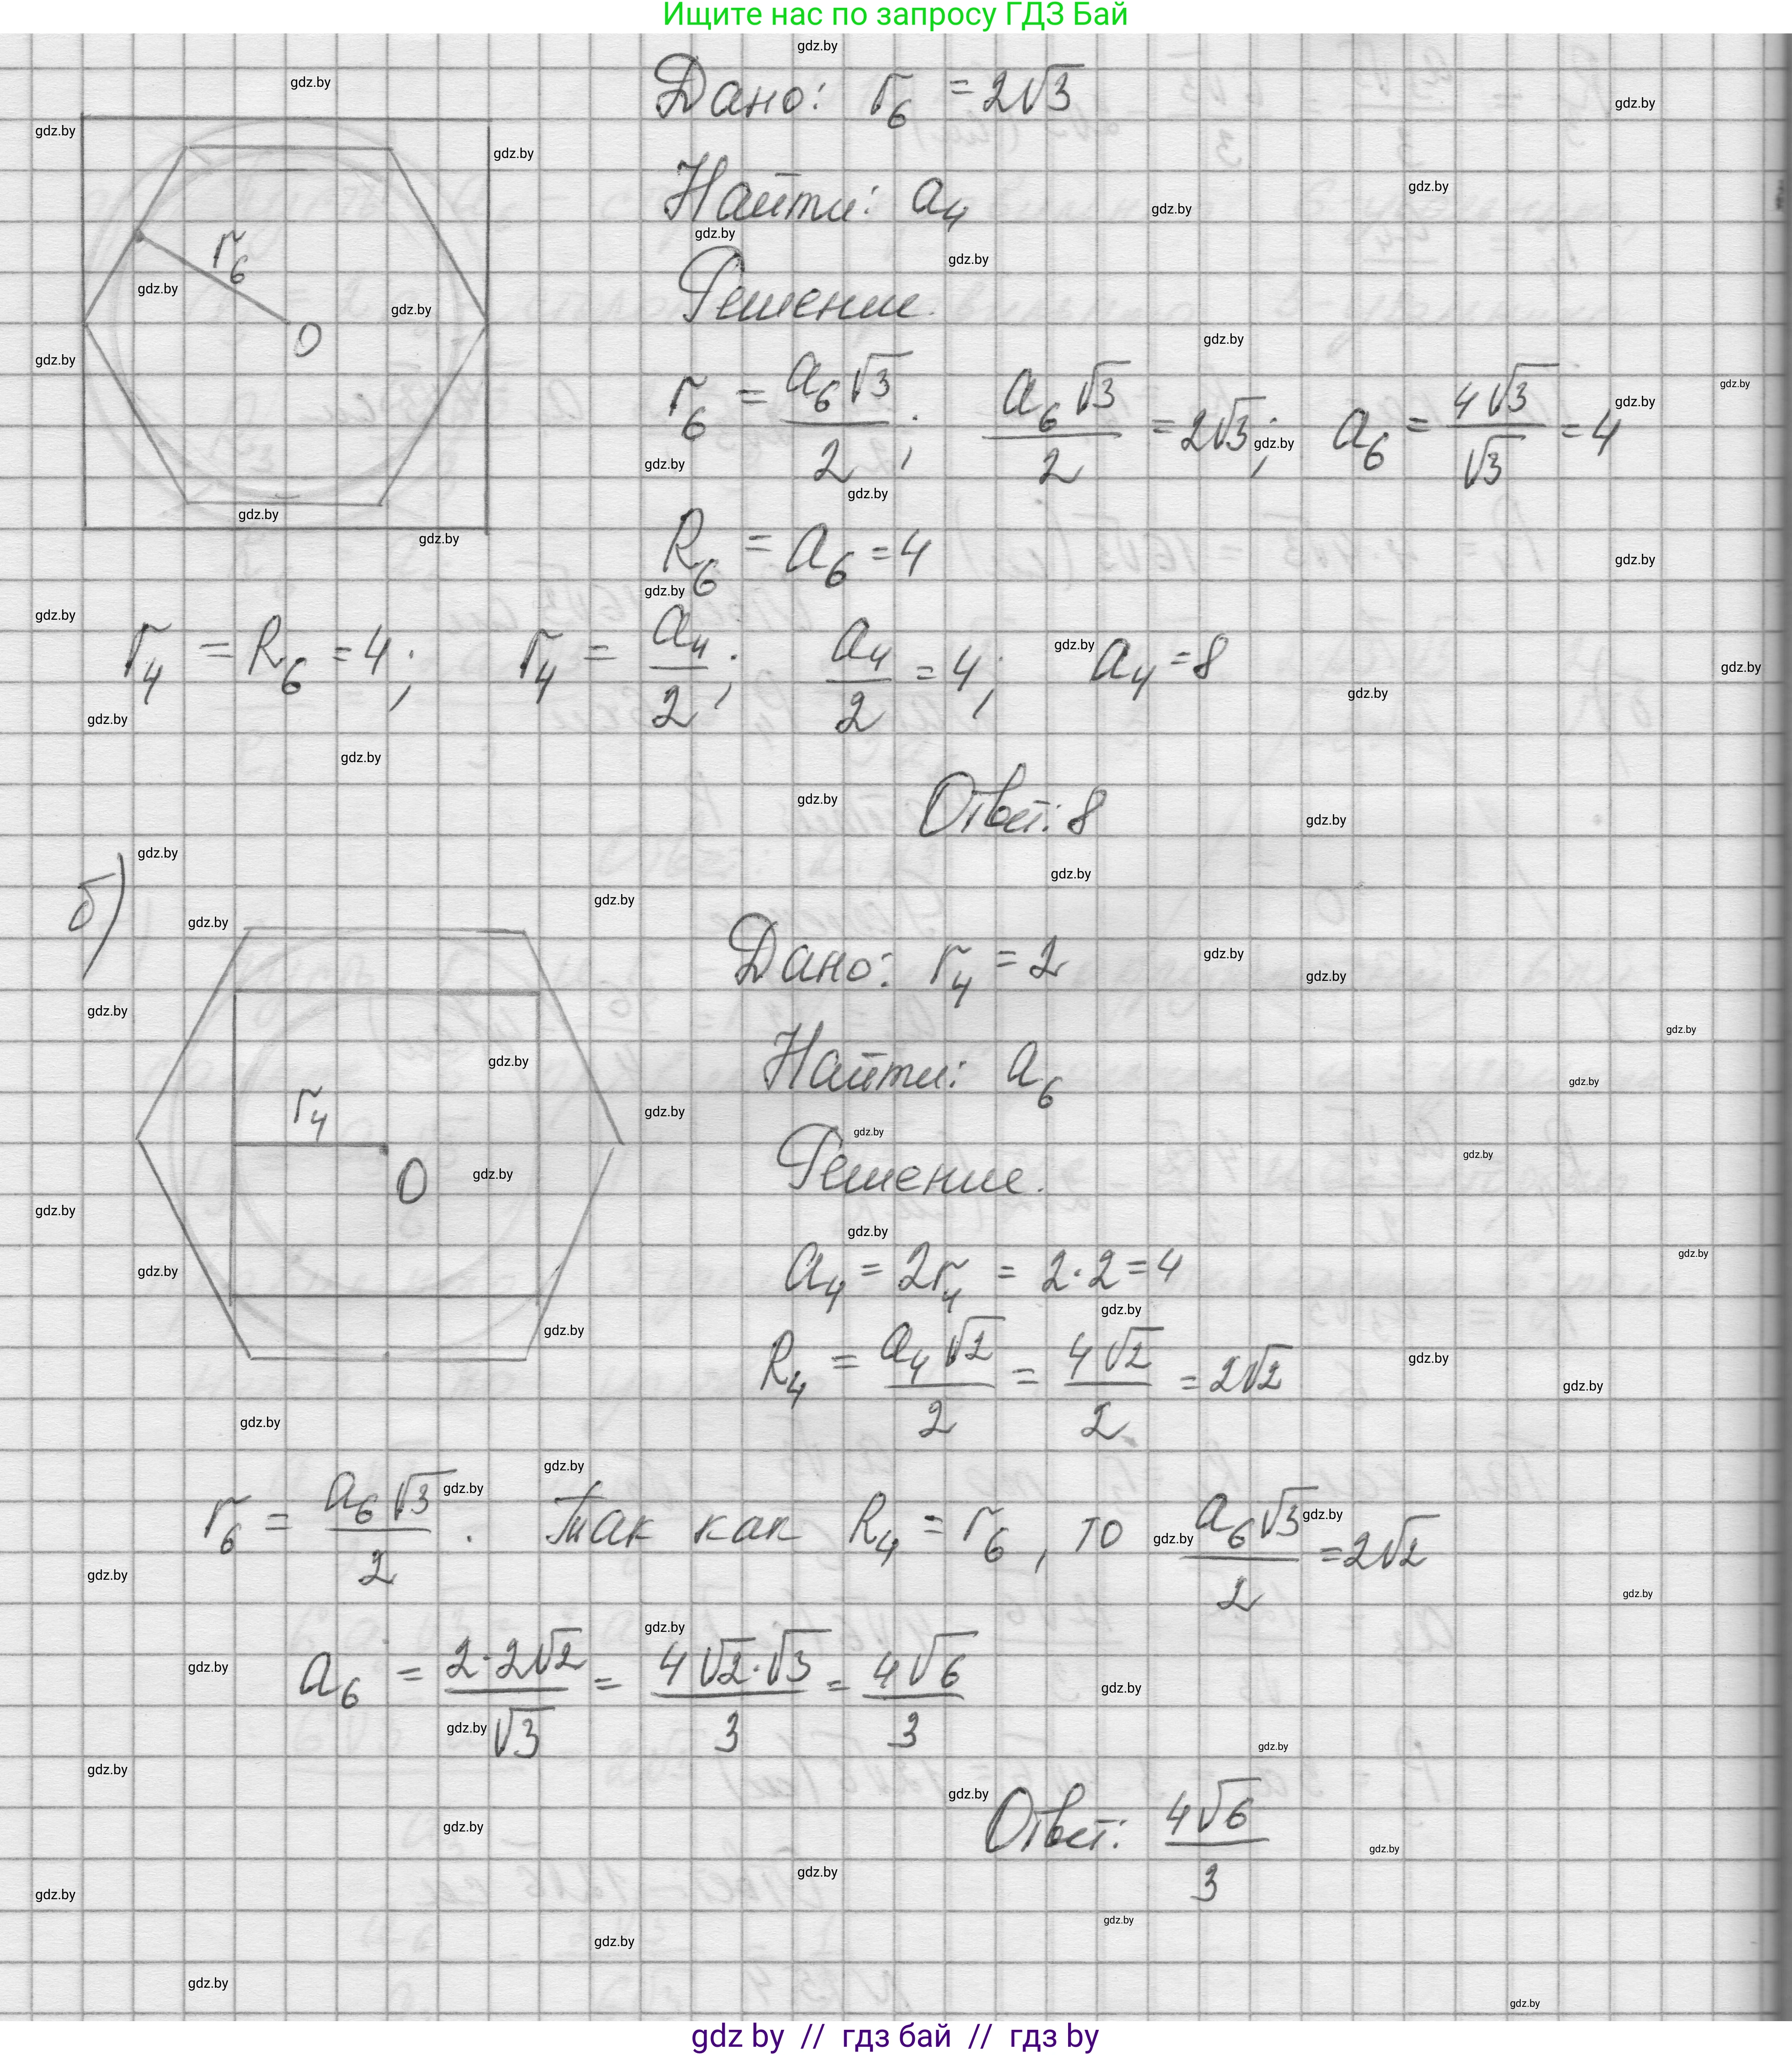 Ищите нас по запросу ГДЗ Бай
Дано: r₆ = 2√3
Найти: a₄
Решение.
r₆ = a₆√3/2; a₆√3/2 = 2√3; a₆ = 4√3/√3 = 4
R₆ = a₆ = 4
r₄ = R₆ = 4; r₄ = a₄/2; a₄/2 = 4; a₄ = 8
Ответ: 8
r₆
O
б)
Дано: r₄ = 2
Найти: a₆
Решение.
a₄ = 2r₄ = 2·2 = 4
R₄ = a₄√2/2 = 4√2/2 = 2√2
r₄
O
r₆ = a₆√3/2. Так как R₄ = r₆, то a₆√3/2 = 2√2
a₆ = 2·2√2/√3 = 4√2·√3/3 = 4√6/3
Ответ: 4√6/3
gdz.by
gdz by // гдз бай // гдз by